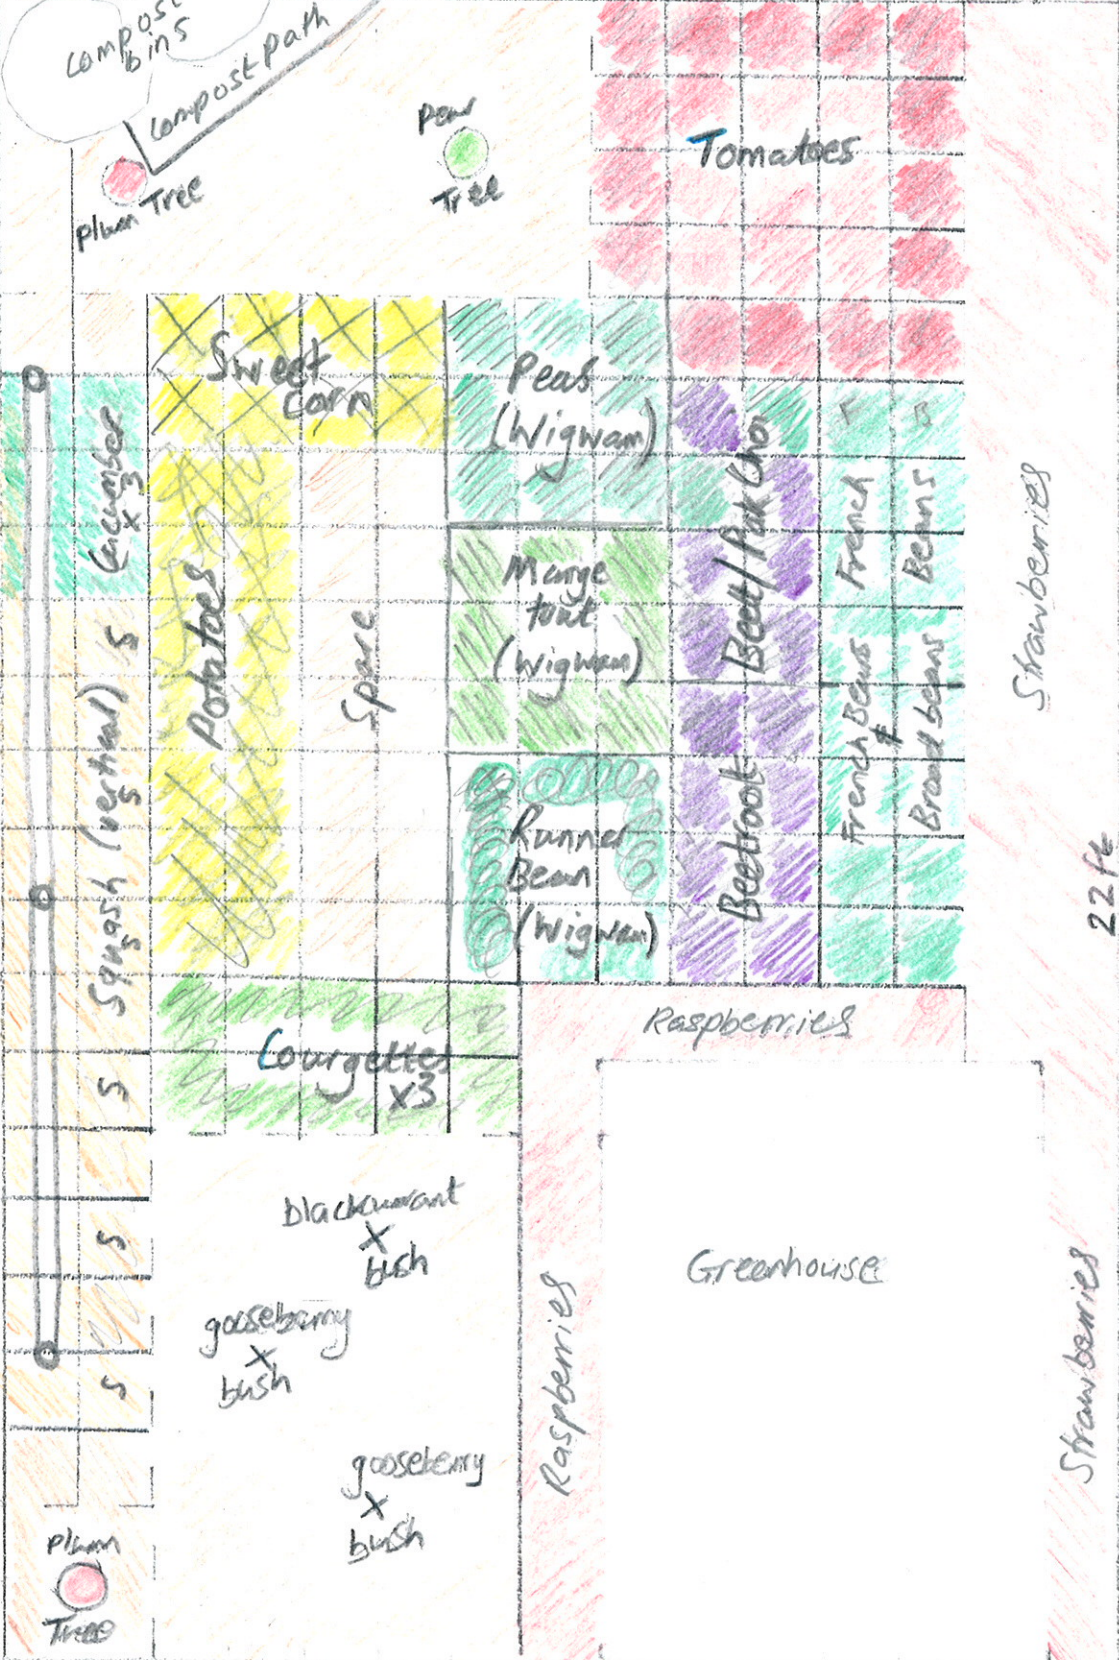 compost
bins
compost path
Plum Tree
Pear
Tree
Tomatoes
Sweet
corn
Peas
(Wigwam)
Cucumber
x 3
Potatoes
Spare
Mange
tout
(Wigwam)
Beet/Pak Choi
French
Beans
Strawberries
S
Squash (vertical)
S
S
Runner
Bean
(Wigwam)
Beetroot
French Beans
&
Broad beans
22ft
Courgettes
x3
Raspberries
S
S
S
blackcurrant
x
bush
gooseberry
x
bush
gooseberry
x
bush
Raspberries
Greenhouse
Strawberries
Plum
Tree